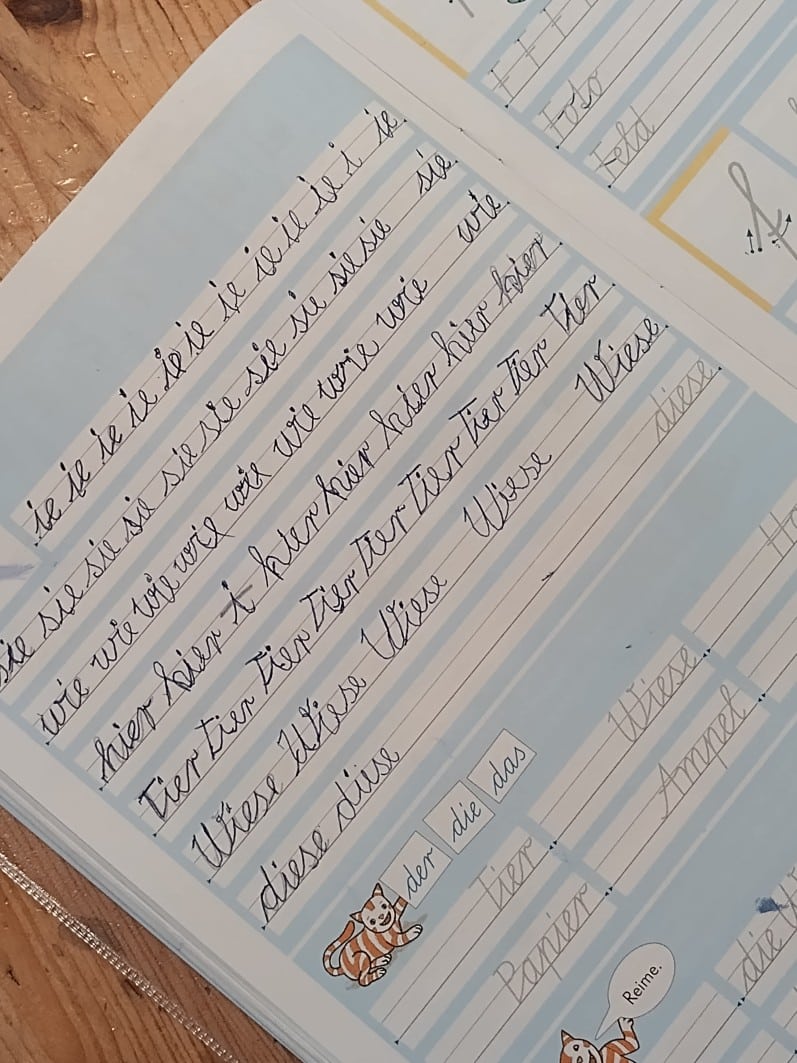 ie ie ie ie ie ie ie ie ie ie i ie
sie sie sie sie sie sie sie sie sie sie sie
wie wie wie wie wie wie wie wie wie
hier hier t hier hier hier hier hier
Tier Tier Tier Tier Tier Tier Tier Tier Tier
Wiese Wiese Wiese Wiese Wiese
diese diese diese
der die das
Tier Wiese
Papier Ampel
Reime.
die
Foto
Feld